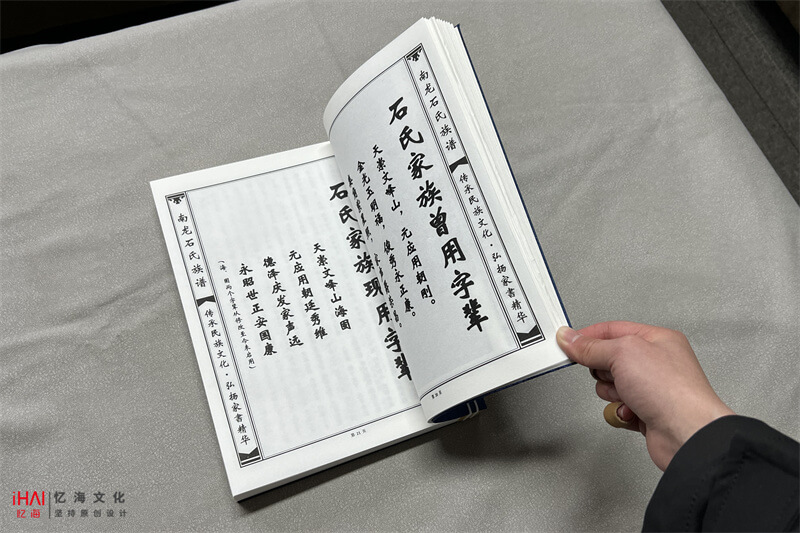 南龙石氏族谱
传承民族文化·弘扬家书精华
石氏家族曾用字辈
天崇文峰山，元应用朝刚。
金光玉明福，俊秀永正康。
石氏家族现用字辈
天崇文峰山海图
元应用朝廷秀维
德泽庆发家声远
永昭世正安国康
南龙石氏族谱
传承民族文化·弘扬家书精华
iHAI
忆海
忆海文化
坚持原创设计